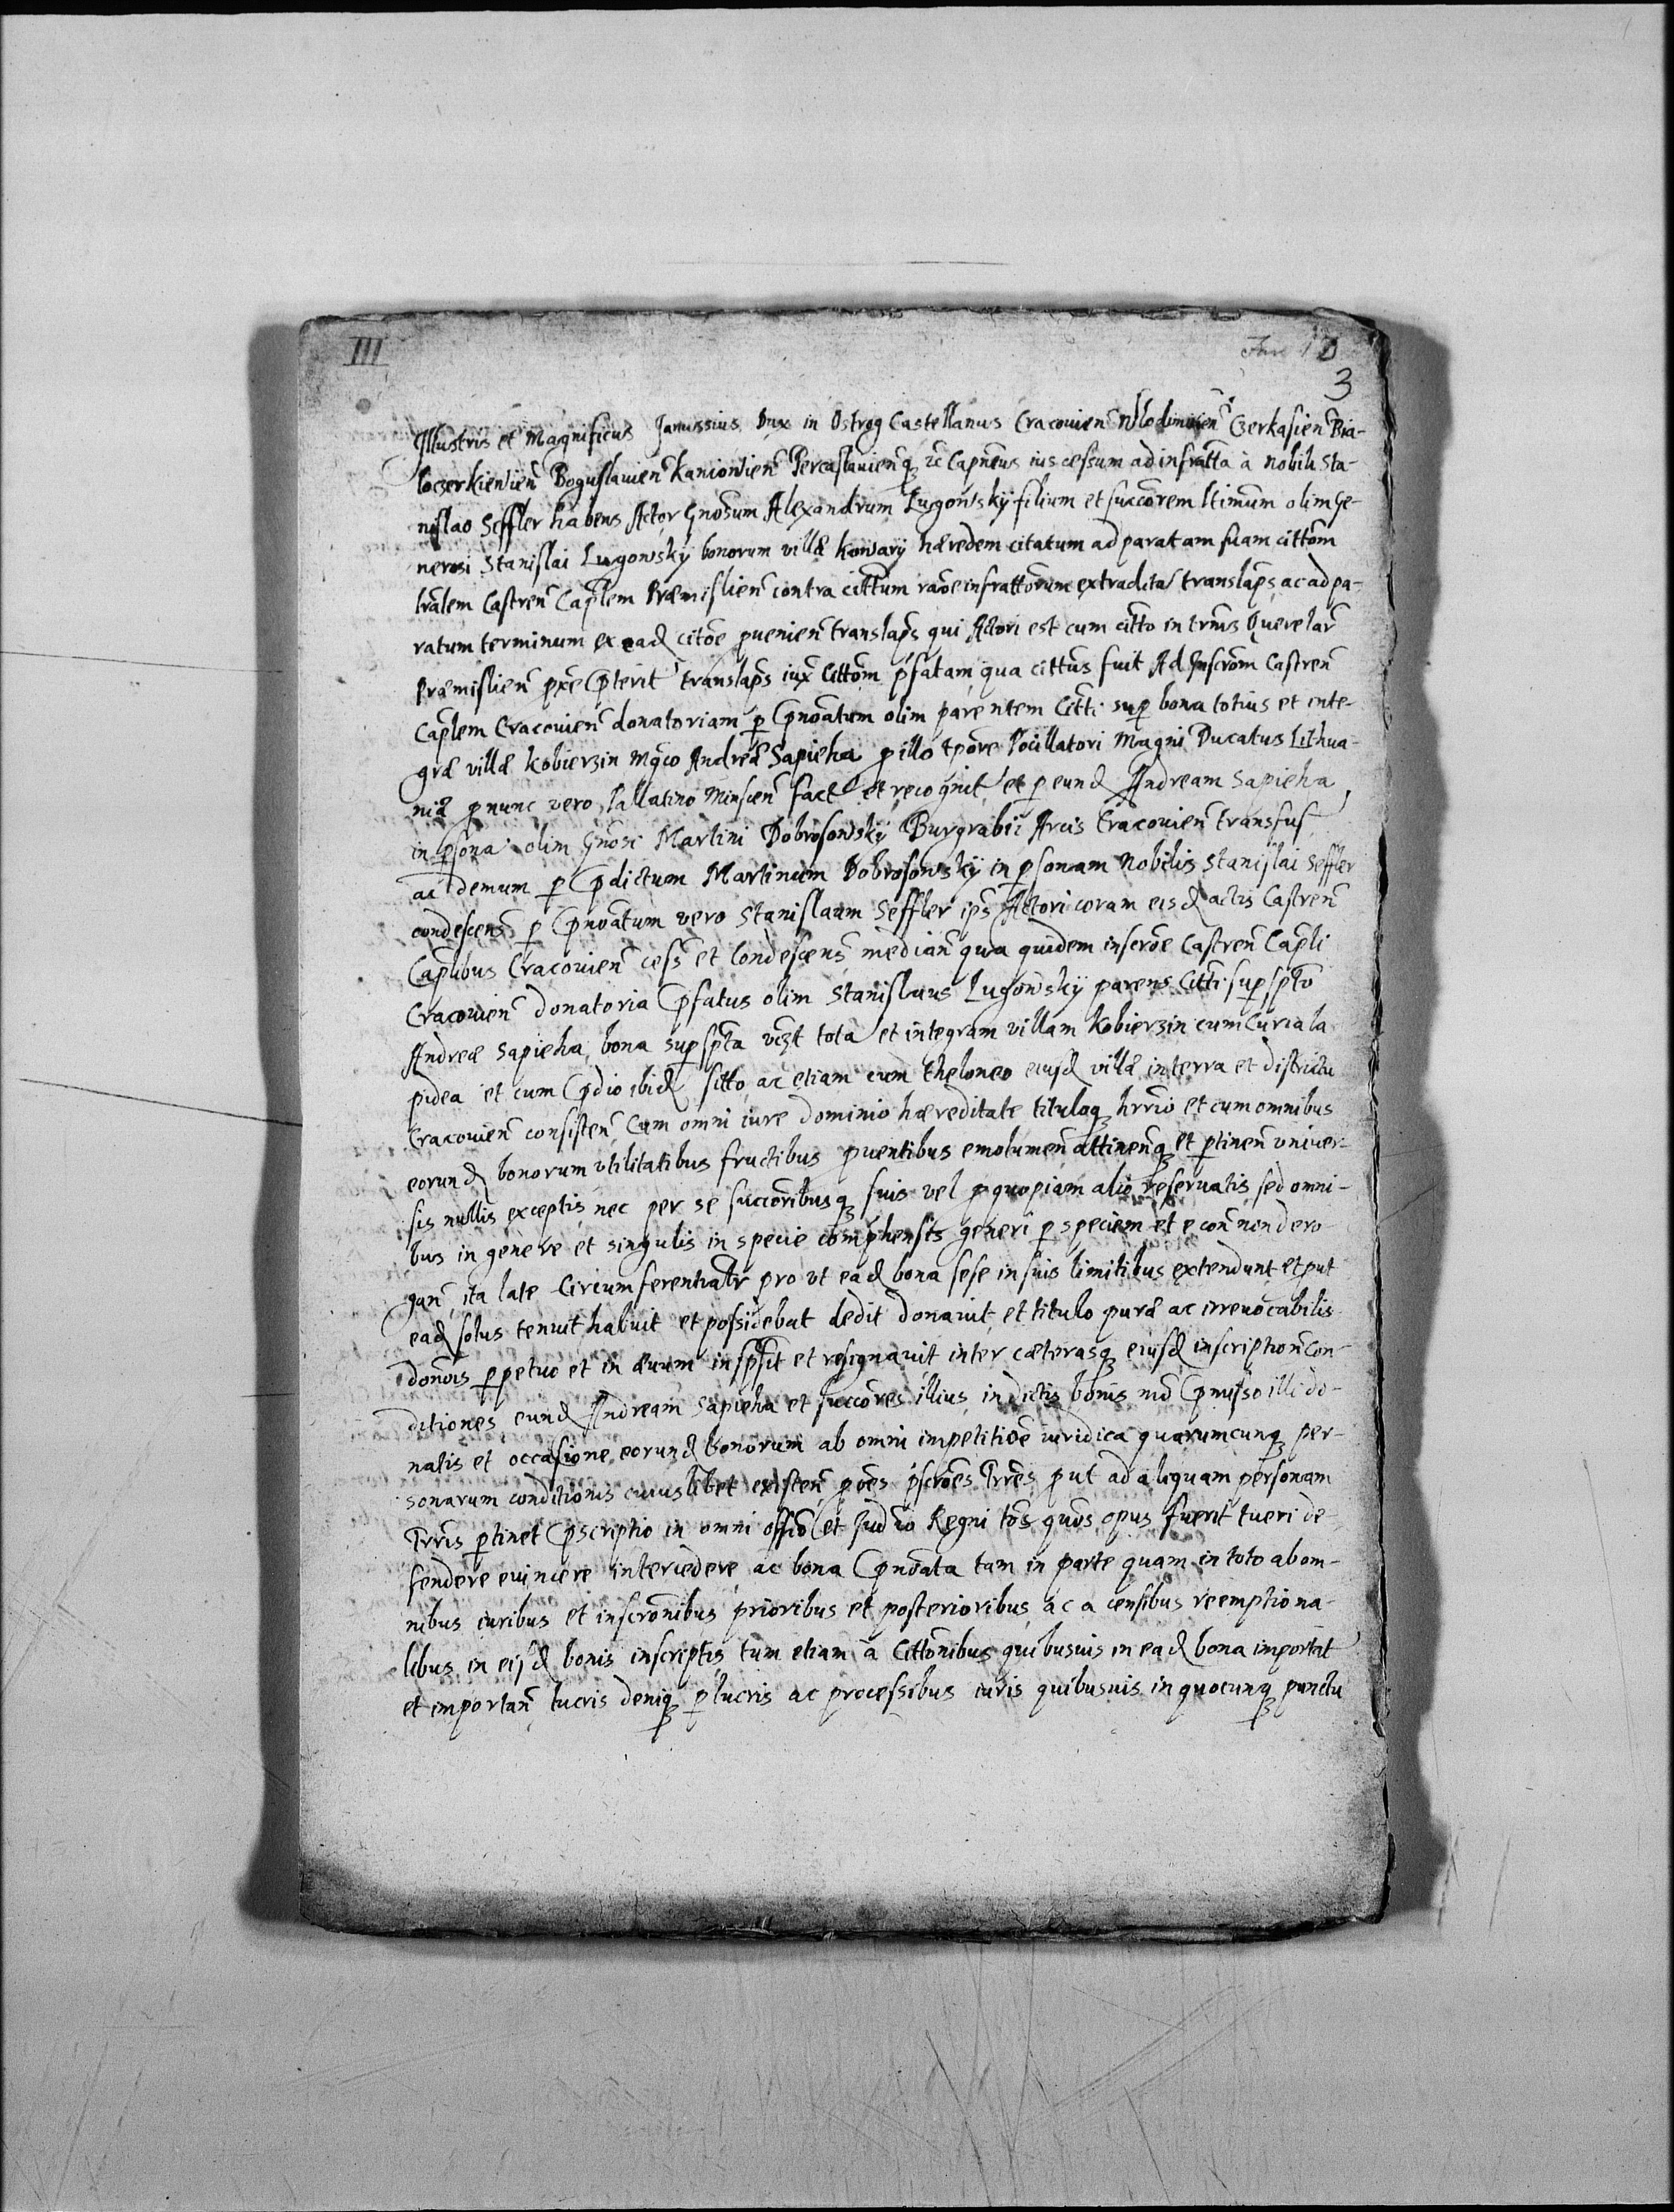 III
3
Illustris et Magnificus Janussius Dux in Ostrog Castellanus Cracouien̄ Wlodimirien̄ Czerkasien̄ Bia-
loczerkiewien̄ Boguslauien̄ Kaniowien̄ Pereaslauienq̄ꝫ ꝛc Capn̄eus ius cessum ad infratta à Nobili Sta-
nislao Seffler habens Actor Gnosum Alexandrum Lugowsky filium et succorem ltimum olim Ge-
nerosi Stanislai Lugowsky bonorum villæ Kowary hæredem citatum ad paratam suam cittom̄
tralem Castren̄ Caplem Præmislien̄ contra cittum raōe infrattorum extradita translaps̄ ac ad pa-
ratum terminum ex eaꝺ citōe puenien̄ translaps̄ qui Actori est cum citto in trm̄s Querelar̄
Præmislien̄ pxē p̄terit translaps̄ iux Cittom̄ p̄fatam qua cittus̄ fuit Ad Inscrom̄ Castren̄
Caplem Cracouien̄ donatoriam ꝑ p̄noatum olim parentem Citti sup̄ bona totius et inte-
græ villæ Kobierzin Mq̄co Andreæ Sapieha ꝓ illo tpore Pocillatori Magni Ducatus Lithua-
niæ ꝓ nunc vero Pallatino Minscen̄ fact et recognit et ꝑ eunꝺ Andream Sapieha
in ꝑsona olim Gnosi Martini Dobrosowsky Burgrabii Arcis Cracouien̄ transfus
ac demum ꝑ p̄dictum Martinum Dobrosowsky in ꝑsonam Nobilis Stanislai Seffler
condescens̄ ꝑ p̄noatum vero Stanislaum Seffler ips̄ Actori coram eisꝺ actis Castren̄
Caplibus Cracouien̄ cess̄ et condescens̄ median̄ qua quidem inscrōe Castren̄ Capli
Cracouien̄ donatoria p̄fatus olim Stanislaus Lugowsky parens Citti supspto
Andreæ Sapieha, bona supspta vczt tota et integram villam Kobierzin cum Curia la
pidea et cum p̄dio ibiꝺ sitto, ac etiam cum theloneo eiusꝺ villæ in terra et districtu
Cracouien̄ consisten̄ Cum omni iure dominio hæreditate tituloqꝫ hrrio et cum omnibus
eorunꝺ bonorum vtilitatibus fructibus puentibus emolumen̄ attinenq̄ꝫ et ꝑtinen̄ vniuer-
sis nullis exceptis nec per se succoribusqꝫ suis vel ꝑ quopiam alio reseruatis sed omni-
bus in genere et singulis in specie comphensis generi ꝑ speciem et e con̄ non dero-
gan̄, ita late circumferentiatr pro vt eaꝺ bona sese in suis limitibus extendunt et put
eaꝺ solus tenuit habuit et possidebat dedit donauit et titulo puræ ac irreuocabilis
donōis ꝑpetuo et in æuum inspsit et resignauit inter cæterasqꝫ eiusꝺ inscription̄ con-
ditiones eunꝺ Andream Sapieha et succores illius in dictis bonis md̄ p̄misso illi do-
natis et occasione eorunꝺ bonorum ab omni impetitiōe iuridica quarumcunqꝫ per-
sonarum conditionis cuiuslibet existen̄ pōes pscrōes Trres put ad aliquam personam
Trris ꝑtinet p̄scriptio in omni offio et Judicio Regni tōs quōs opus fuerit tueri de-
fendere euincere intercedere ac bona p̄noata tam in parte quam in toto ab om-
nibus iuribus et inscronibus prioribus et posterioribus ac a censibus reemptiona-
libus in eisꝺ bonis inscriptis tum etiam à Cittonibus quibusuis in eaꝺ bona importat
et importan̄ lucris deniqꝫ ꝑlucris ac processibus iuris quibusuis in quocunqꝫ punctu